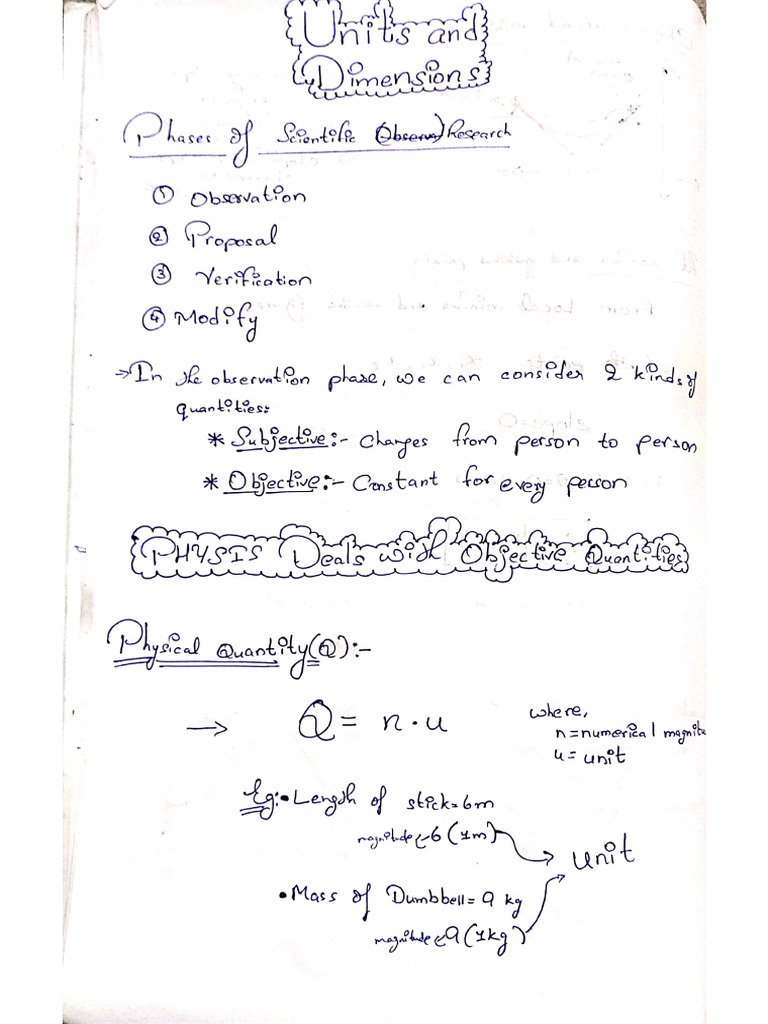 Units and
Dimensions
Phases of Scientific (Observa) Research
① Observation
② Proposal
③ Verification
④ Modify
→ In the observation phase, we can consider 2 kinds of
quantities:
* Subjective:- Changes from person to person
* Objective:- Constant for every person
PHYSIS Deals with Objective Quantities
Physical Quantity (Q):-
→ Q = n · u
where,
n = numerical magnitu
u = unit
Eg:- • Length of stick = 6m
magnitude ← 6 (1m)
unit
• Mass of Dumbbell = 9 kg
magnitude ← 9 (1kg)